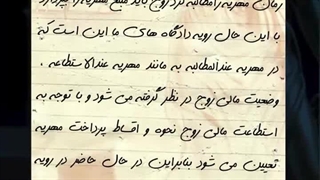 زمان مهریه را مطالبه کرد زوج باید مبلغ مهریه را بپردازد
با این حال رویه دادگاه های ما این است که
در مهریه عندالمطالبه به مانند مهریه عندالاستطاعه .
وضعیت مالی زوج در نظر گرفته می شود و با توجه به
استطاعت مالی زوج نحوه و اقساط پرداخت مهریه
تعیین می شود بنابراین در حال حاضر در رویه